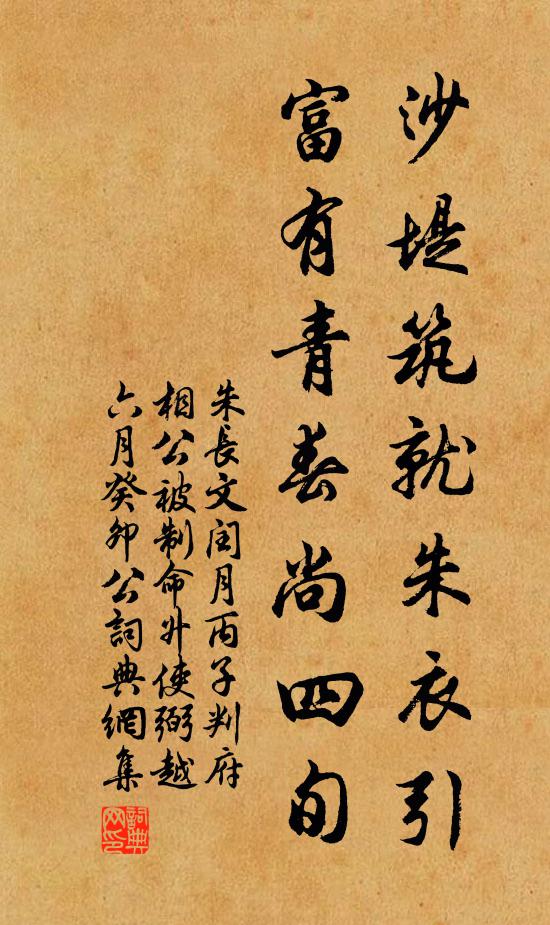 沙堤筑就朱衣引
富有青春尚四旬
朱長文閏月丙子判府
相公被制命升使弼越
六月癸卯公詞典網集
詞典网印